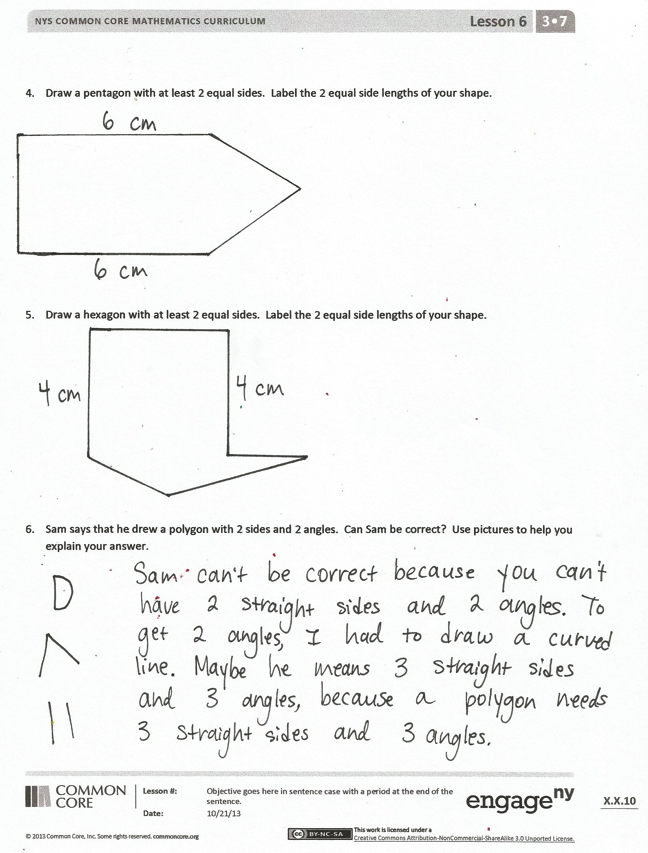 NYS COMMON CORE MATHEMATICS CURRICULUM Lesson 6 3•7
4. Draw a pentagon with at least 2 equal sides. Label the 2 equal side lengths of your shape.
6 cm
6 cm
5. Draw a hexagon with at least 2 equal sides. Label the 2 equal side lengths of your shape.
4 cm
4 cm
6. Sam says that he drew a polygon with 2 sides and 2 angles. Can Sam be correct? Use pictures to help you
explain your answer.
Sam can't be correct because you can't
have 2 straight sides and 2 angles. To
get 2 angles, I had to draw a curved
line. Maybe he means 3 straight sides
and 3 angles, because a polygon needs
3 straight sides and 3 angles.
COMMON
CORE
Lesson #:
Objective goes here in sentence case with a period at the end of the
sentence.
Date:
10/21/13
engageny
X.X.10
© 2013 Common Core, Inc. Some rights reserved. commoncore.org
cc BY-NC-SA
This work is licensed under a
Creative Commons Attribution-NonCommercial-ShareAlike 3.0 Unported License.